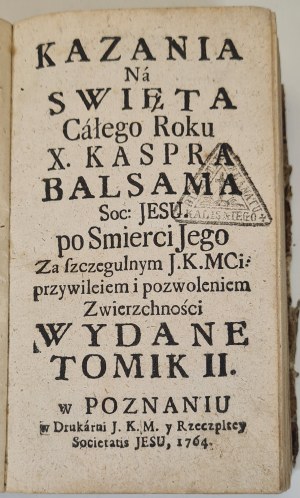 KAZANIA
Ná
SWIĘTA
Cáłego Roku
X. KASPRA
BALSAMA
Soc: JESU.
po Smierci Jego
Za szczegulnym J.K.MCi:
przywileiem i pozwoleniem
Zwierzchności
WYDANE
TOMIK II.
w POZNANIU
w Drukárni J. K. M. y Rzeczpltey
Societatis JESU, 1764.
KALISKIEGO